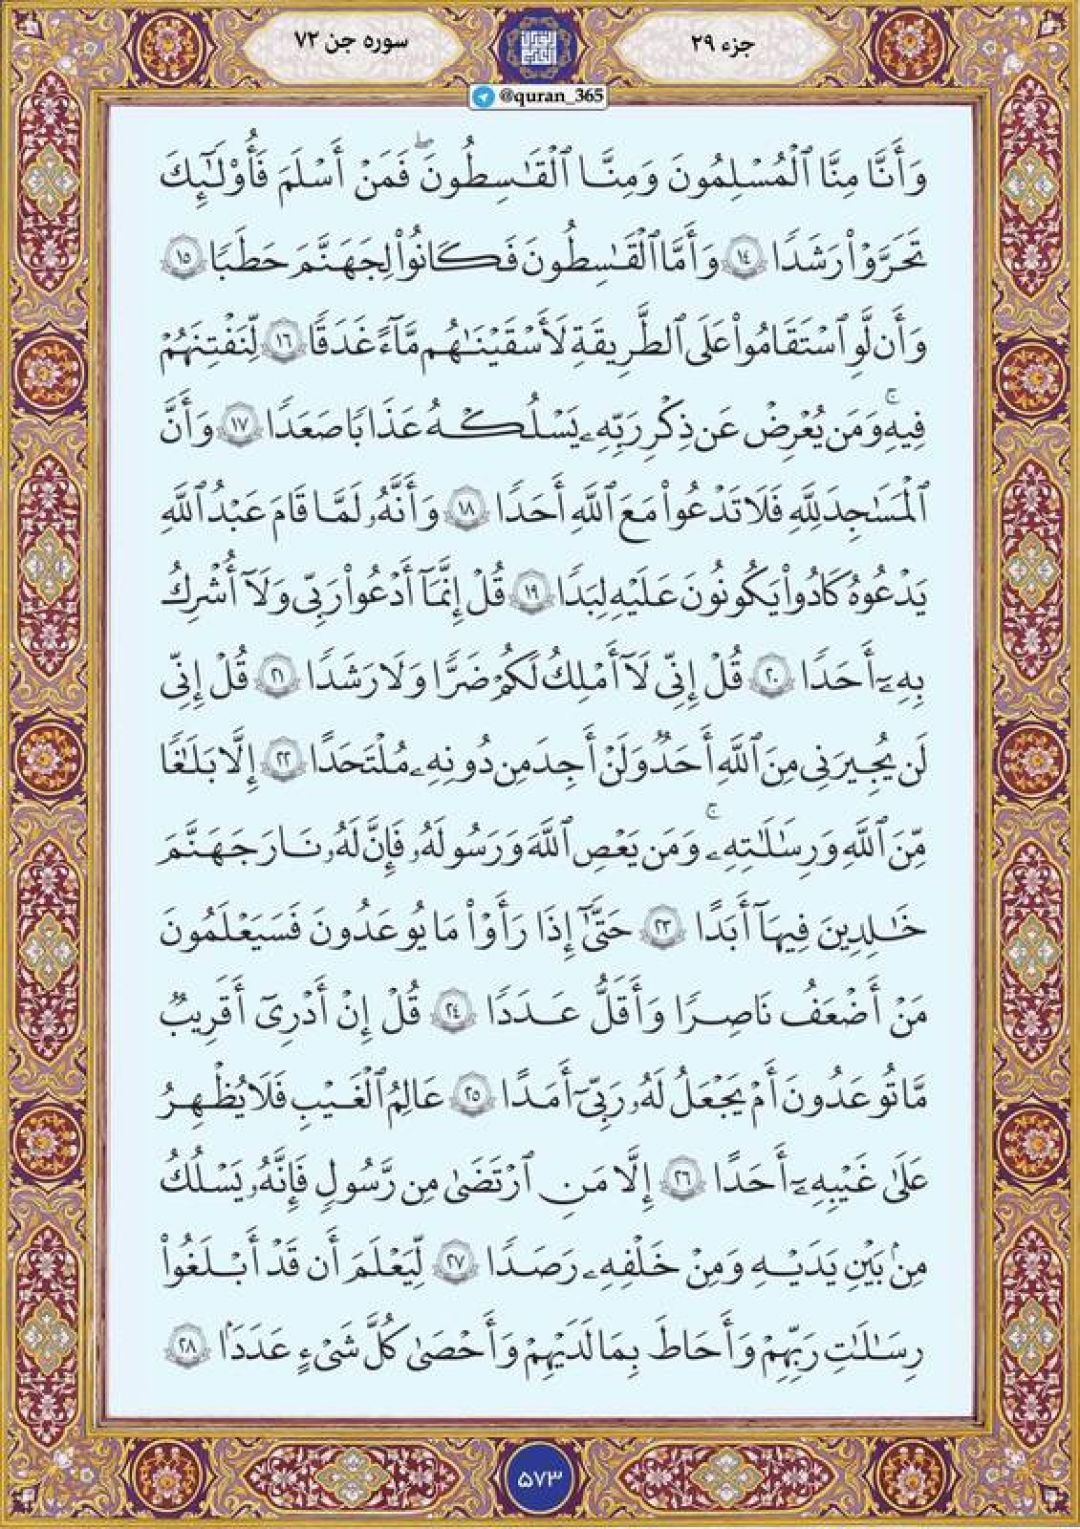 جزء ۲۹
سوره جن ۷۲
@quran_365
وَأَنَّا مِنَّا ٱلْمُسْلِمُونَ وَمِنَّا ٱلْقَـٰسِطُونَۖ فَمَنْ أَسْلَمَ فَأُو۟لَـٰٓئِكَ
تَحَرَّوْا۟ رَشَدًا ١٤ وَأَمَّا ٱلْقَـٰسِطُونَ فَكَانُوا۟ لِجَهَنَّمَ حَطَبًا ١٥
وَأَن لَّوِ ٱسْتَقَـٰمُوا۟ عَلَى ٱلطَّرِيقَةِ لَأَسْقَيْنَـٰهُم مَّآءً غَدَقًا ١٦ لِّنَفْتِنَهُمْ
فِيهِۚ وَمَن يُعْرِضْ عَن ذِكْرِ رَبِّهِۦ يَسْلُكْهُ عَذَابًا صَعَدًا ١٧ وَأَنَّ
ٱلْمَسَـٰجِدَ لِلَّهِ فَلَا تَدْعُوا۟ مَعَ ٱللَّهِ أَحَدًا ١٨ وَأَنَّهُۥ لَمَّا قَامَ عَبْدُ ٱللَّهِ
يَدْعُوهُ كَادُوا۟ يَكُونُونَ عَلَيْهِ لِبَدًا ١٩ قُلْ إِنَّمَآ أَدْعُوا۟ رَبِّى وَلَآ أُشْرِكُ
بِهِۦٓ أَحَدًا ٢٠ قُلْ إِنِّى لَآ أَمْلِكُ لَكُمْ ضَرًّا وَلَا رَشَدًا ٢١ قُلْ إِنِّى
لَن يُجِيرَنِى مِنَ ٱللَّهِ أَحَدٌ وَلَنْ أَجِدَ مِن دُونِهِۦ مُلْتَحَدًا ٢٢ إِلَّا بَلَـٰغًا
مِّنَ ٱللَّهِ وَرِسَـٰلَـٰتِهِۦۚ وَمَن يَعْصِ ٱللَّهَ وَرَسُولَهُۥ فَإِنَّ لَهُۥ نَارَ جَهَنَّمَ
خَـٰلِدِينَ فِيهَآ أَبَدًا ٢٣ حَتَّىٰٓ إِذَا رَأَوْا۟ مَا يُوعَدُونَ فَسَيَعْلَمُونَ
مَنْ أَضْعَفُ نَاصِرًا وَأَقَلُّ عَدَدًا ٢٤ قُلْ إِنْ أَدْرِىٓ أَقَرِيبٌ
مَّا تُوعَدُونَ أَمْ يَجْعَلُ لَهُۥ رَبِّىٓ أَمَدًا ٢٥ عَـٰلِمُ ٱلْغَيْبِ فَلَا يُظْهِرُ
عَلَىٰ غَيْبِهِۦٓ أَحَدًا ٢٦ إِلَّا مَنِ ٱرْتَضَىٰ مِن رَّسُولٍ فَإِنَّهُۥ يَسْلُكُ
مِنۢ بَيْنِ يَدَيْهِ وَمِنْ خَلْفِهِۦ رَصَدًا ٢٧ لِّيَعْلَمَ أَن قَدْ أَبْلَغُوا۟
رِسَـٰلَـٰتِ رَبِّهِمْ وَأَحَاطَ بِمَا لَدَيْهِمْ وَأَحْصَىٰ كُلَّ شَىْءٍ عَدَدًۢا ٢٨
۵۷۳